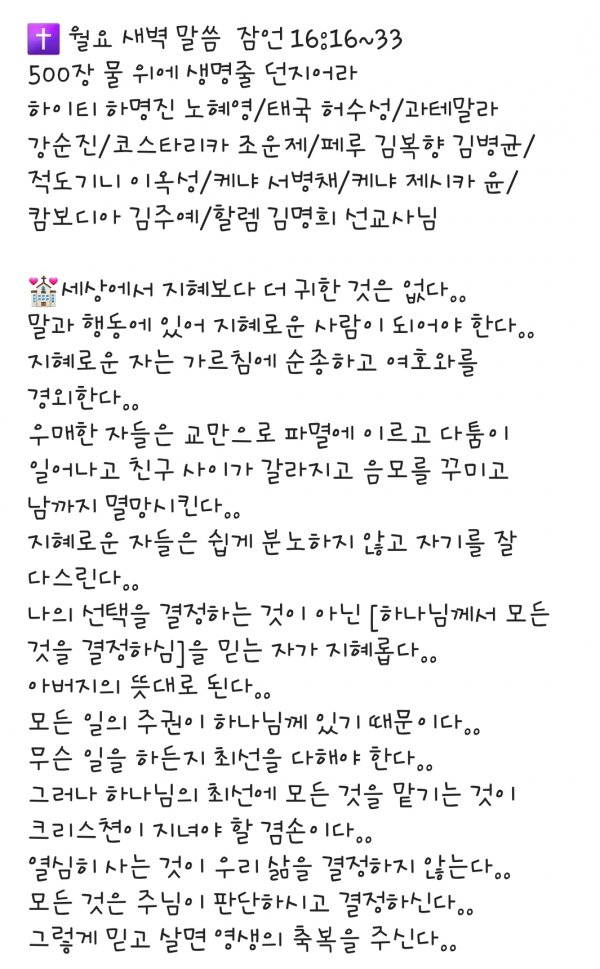 ✝️ 월요 새벽 말씀 잠언 16:16~33
500장 물 위에 생명줄 던지어라
하이티 하명진 노혜영/태국 허수성/과테말라
강순진/코스타리카 조운제/페루 김복향 김병균/
적도기니 이옥성/케냐 서병채/케냐 제시카 윤/
캄보디아 김주예/할렘 김명희 선교사님
💒세상에서 지혜보다 더 귀한 것은 없다。。
말과 행동에 있어 지혜로운 사람이 되어야 한다。。
지혜로운 자는 가르침에 순종하고 여호와를
경외한다。。
우매한 자들은 교만으로 파멸에 이르고 다툼이
일어나고 친구 사이가 갈라지고 음모를 꾸미고
남까지 멸망시킨다。。
지혜로운 자들은 쉽게 분노하지 않고 자기를 잘
다스린다。。
나의 선택을 결정하는 것이 아닌 [하나님께서 모든
것을 결정하심]을 믿는 자가 지혜롭다。。
아버지의 뜻대로 된다。。
모든 일의 주권이 하나님께 있기 때문이다。。
무슨 일을 하든지 최선을 다해야 한다。。
그러나 하나님의 최선에 모든 것을 맡기는 것이
크리스천이 지녀야 할 겸손이다。。
열심히 사는 것이 우리 삶을 결정하지 않는다。。
모든 것은 주님이 판단하시고 결정하신다。。
그렇게 믿고 살면 영생의 축복을 주신다。。